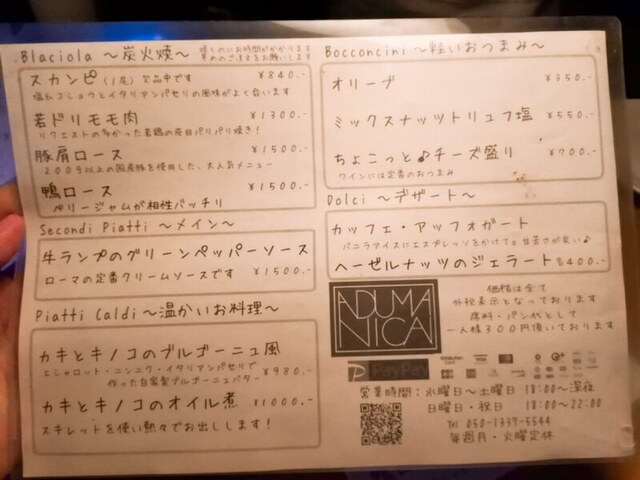 Blaciola ～炭火焼～
焼くのにお時間がかかります
早めのご注文をお願いします
スカンピ(1尾)欠品中です ￥840.-
塩レモンコショウとイタリアンパセリの風味がよく合います
若ドリモモ肉 ￥1300.-
リクエストの多かった若鶏の皮目パリパリ焼き！
豚肩ロース ￥1500.-
200g以上の国産豚を使用した、大人気メニュー
鴨ロース ￥1500.-
ベリージャムが相性バッチリ
Secondi Piatti ～メイン～
牛ランプのグリーンペッパーソース
ローマの定番クリームソースです ￥1500.-
Piatti Caldi ～温かいお料理～
カキとキノコのブルゴーニュ風
エシャロット・ニンニク・イタリアンパセリで
作った自家製ブルゴーニュバター ￥980.-
カキとキノコのオイル煮 ￥1000.-
スキレットを使い熱々でお出しします！
Bocconcini ～軽いおつまみ～
オリーブ ￥350.-
ミックスナッツトリュフ塩 ￥550.-
ちょこっと♪チーズ盛り ￥700.-
ワインには定番のおつまみ
Dolci ～デザート～
カッフェ・アッフォガート
バニラアイスにエスプレッソをかけて。甘苦さが良い♪
ヘーゼルナッツのジェラート 各400.-
ADUMA
NICA
価格は全て
外税表示となっております
席料・パン代として
一人様300円頂いております
PayPay
営業時間：水曜日～土曜日 18:00～深夜
日曜日・祝日 18:00～22:00
Tel 050-1337-5544
毎週月・火曜定休